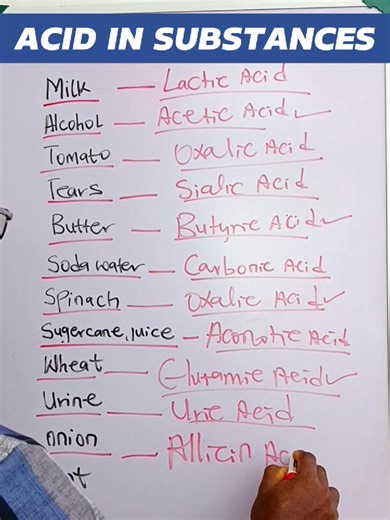 ACID IN SUBSTANCES
Milk — Lactic Acid
Alcohol — Acetic Acid ✓
Tomato — Oxalic Acid
Tears — Sialic Acid
Butter — Butyric Acid ✓
Soda water — Carbonic Acid
Spinach — Oxalic Acid ✓
Sugercane, juice — Aconotic Acid
Wheat — Glutamic Acid ✓
Urine — Uric Acid
Onion — Allicin Ac